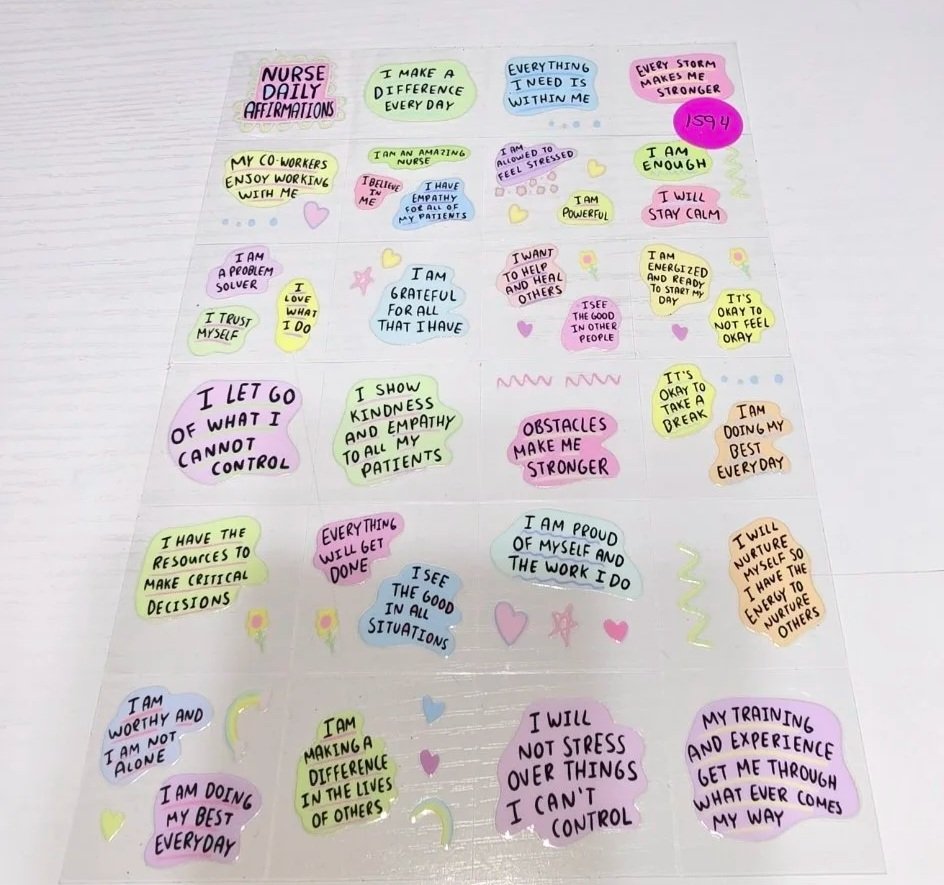 NURSE
DAILY
AFFIRMATIONS
I MAKE A
DIFFERENCE
EVERY DAY
EVERYTHING
I NEED IS
WITHIN ME
EVERY STORM
MAKES ME
STRONGER
1594
MY CO-WORKERS
ENJOY WORKING
WITH ME
I AM AN AMAZING
NURSE
I BELIEVE
IN
ME
I HAVE
EMPATHY
FOR ALL OF
MY PATIENTS
I AM
ALLOWED TO
FEEL STRESSED
I AM
POWERFUL
I AM
ENOUGH
I WILL
STAY CALM
I AM
A PROBLEM
SOLVER
I TRUST
MYSELF
I
LOVE
WHAT
I DO
I AM
GRATEFUL
FOR ALL
THAT I HAVE
I WANT
TO HELP
AND HEAL
OTHERS
I SEE
THE GOOD
IN OTHER
PEOPLE
I AM
ENERGIZED
AND READY
TO START MY
DAY
IT'S
OKAY TO
NOT FEEL
OKAY
I LET GO
OF WHAT I
CANNOT
CONTROL
I SHOW
KINDNESS
AND EMPATHY
TO ALL MY
PATIENTS
OBSTACLES
MAKE ME
STRONGER
IT'S
OKAY TO
TAKE A
BREAK
I AM
DOING MY
BEST
EVERYDAY
I HAVE THE
RESOURCES TO
MAKE CRITICAL
DECISIONS
EVERYTHING
WILL GET
DONE
I SEE
THE GOOD
IN ALL
SITUATIONS
I AM PROUD
OF MYSELF AND
THE WORK I DO
I WILL
NURTURE
MYSELF SO
I HAVE THE
ENERGY TO
NURTURE
OTHERS
I AM
WORTHY AND
I AM NOT
ALONE
I AM DOING
MY BEST
EVERYDAY
I AM
MAKING A
DIFFERENCE
IN THE LIVES
OF OTHERS
I WILL
NOT STRESS
OVER THINGS
I CAN'T
CONTROL
MY TRAINING
AND EXPERIENCE
GET ME THROUGH
WHAT EVER COMES
MY WAY